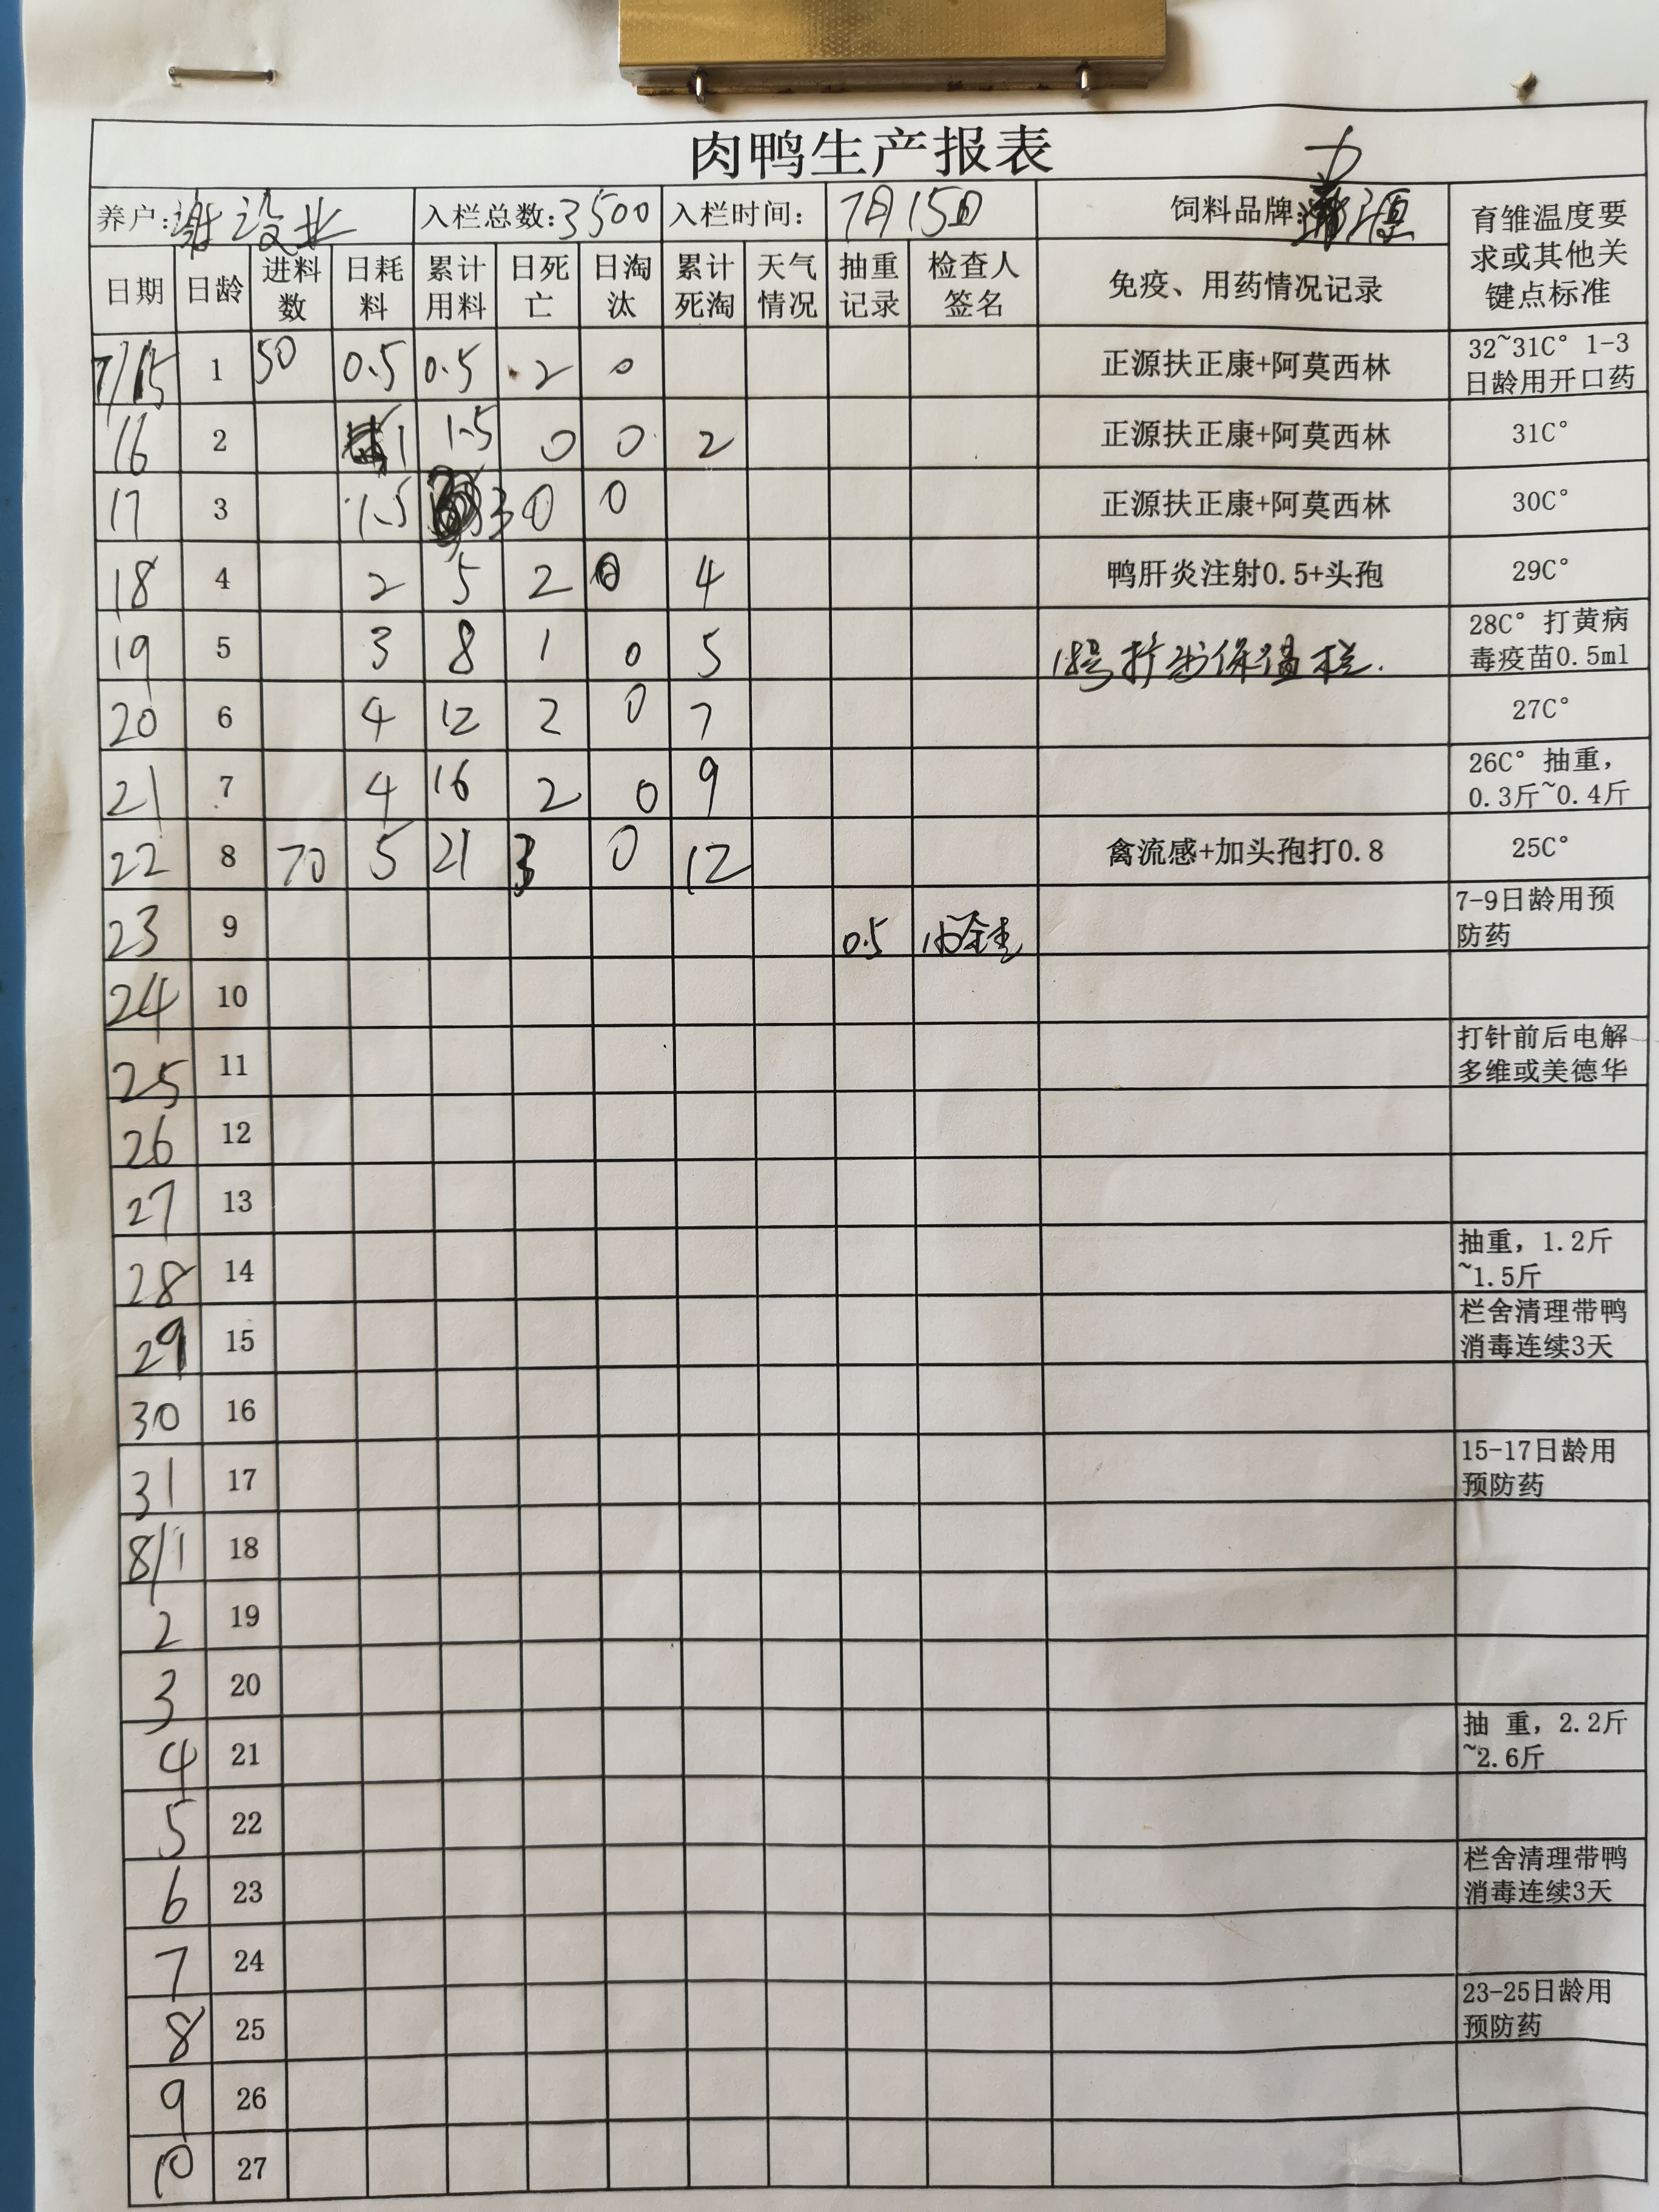 肉鸭生产报表
养户:谢设业 入栏总数:3500 入栏时间: 7月15日 饲料品牌: 力源 育雏温度要求或其他关键点标准
日期 日龄 进料数 日耗料 累计用料 日死亡 日淘汰 累计死淘 天气情况 抽重记录 检查人签名 免疫、用药情况记录
7/15 1 50 0.5 0.5 2 0 正源扶正康+阿莫西林 32~31C° 1-3日龄用开口药
16 2 1 1.5 0 0 2 正源扶正康+阿莫西林 31C°
17 3 1.5 3 0 0 正源扶正康+阿莫西林 30C°
18 4 2 5 2 0 4 鸭肝炎注射0.5+头孢 29C°
19 5 3 8 1 0 5 18号扩出保温栏. 28C° 打黄病毒疫苗0.5ml
20 6 4 12 2 0 7 27C°
21 7 4 16 2 0 9 26C° 抽重，0.3斤~0.4斤
22 8 70 5 21 3 0 12 禽流感+加头孢打0.8 25C°
23 9 0.5 7-9日龄用预防药
24 10
25 11 打针前后电解多维或美德华
26 12
27 13
28 14 抽重，1.2斤~1.5斤
29 15 栏舍清理带鸭消毒连续3天
30 16
31 17 15-17日龄用预防药
8/1 18
2 19
3 20
4 21 抽 重，2.2斤~2.6斤
5 22
6 23 栏舍清理带鸭消毒连续3天
7 24
8 25 23-25日龄用预防药
9 26
10 27